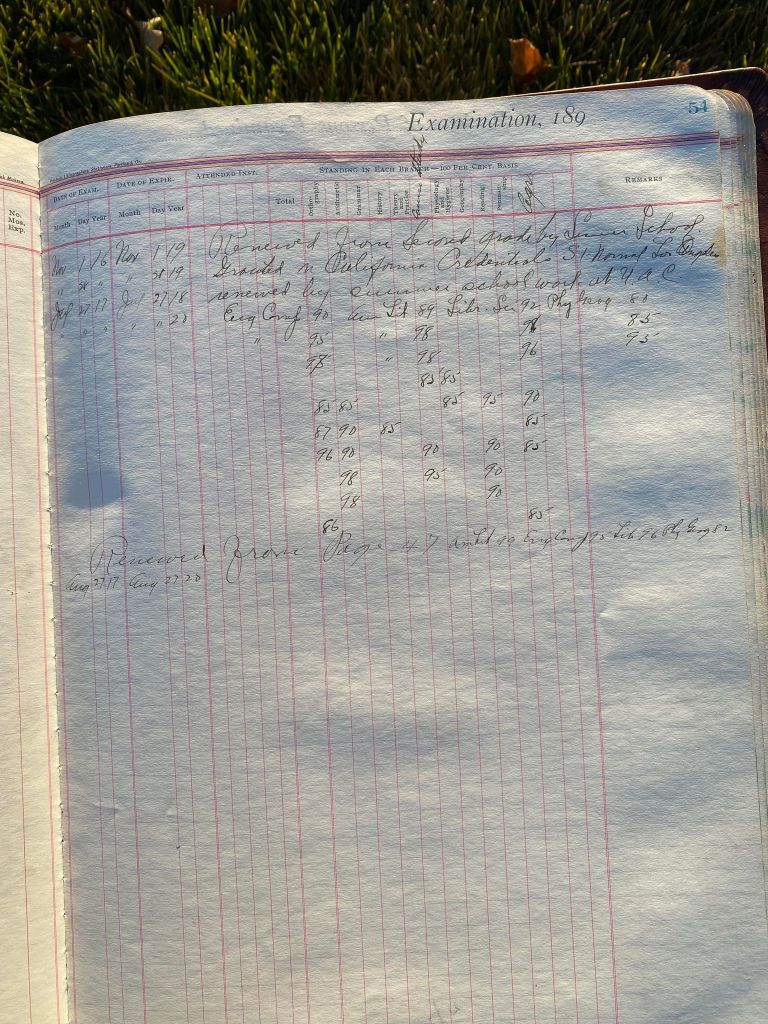 54
Examination, 189
DATE OF EXAM. DATE OF EXPIR. ATTENDED INST. STANDING IN EACH BRANCH—100 PER CENT. BASIS REMARKS
No. Mos. Exp. Month Day Year Month Day Year Total Orthography Arithmetic Grammar History Theory and Practice Physiology and Hygiene Geography Reading Penmanship
Nov 1 16 Nov 1 19 Renewed from Second grade by Summer School.
" 28 " " 28 19 Granted on California Credentials St Normal Los Angeles
27 17 27 18 renewed by summer school work at U.A.C
" " " " " 20 Eng Comp 90 Am Lit 89 Libr. Sci 92 Phy Geog 80
" 95 " 98 98 85
98 " 78 96 95
85 85
85 85 85 95 90
87 90 85 85
96 90 90 90 85
98 95 90
98 90
86 85
Renewed From Page 47 Am Lit Eng Comp 95 Lib 76 Phy Geog 82
Aug 27 17 Aug 27 20